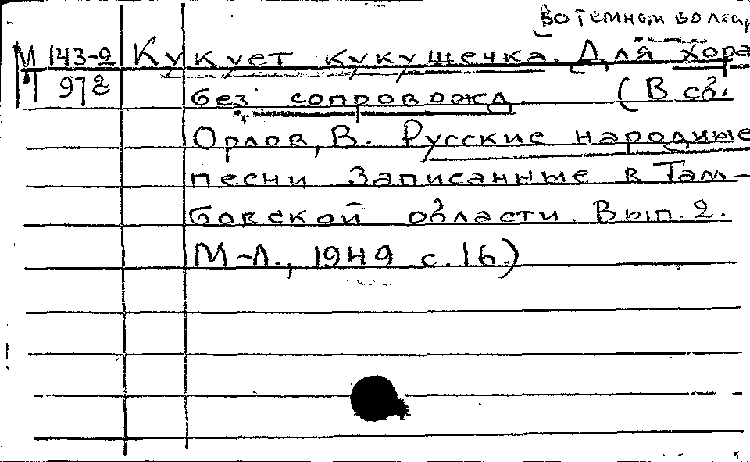 во темном
М 143-2 Кукует кукушечка. Для хора
972 без сопровожд. (В сб.
Орлов, В. Русские народные
песни Записанные в Там-
бовской области. Вып. 2.
М-Л., 1949 с. 16)